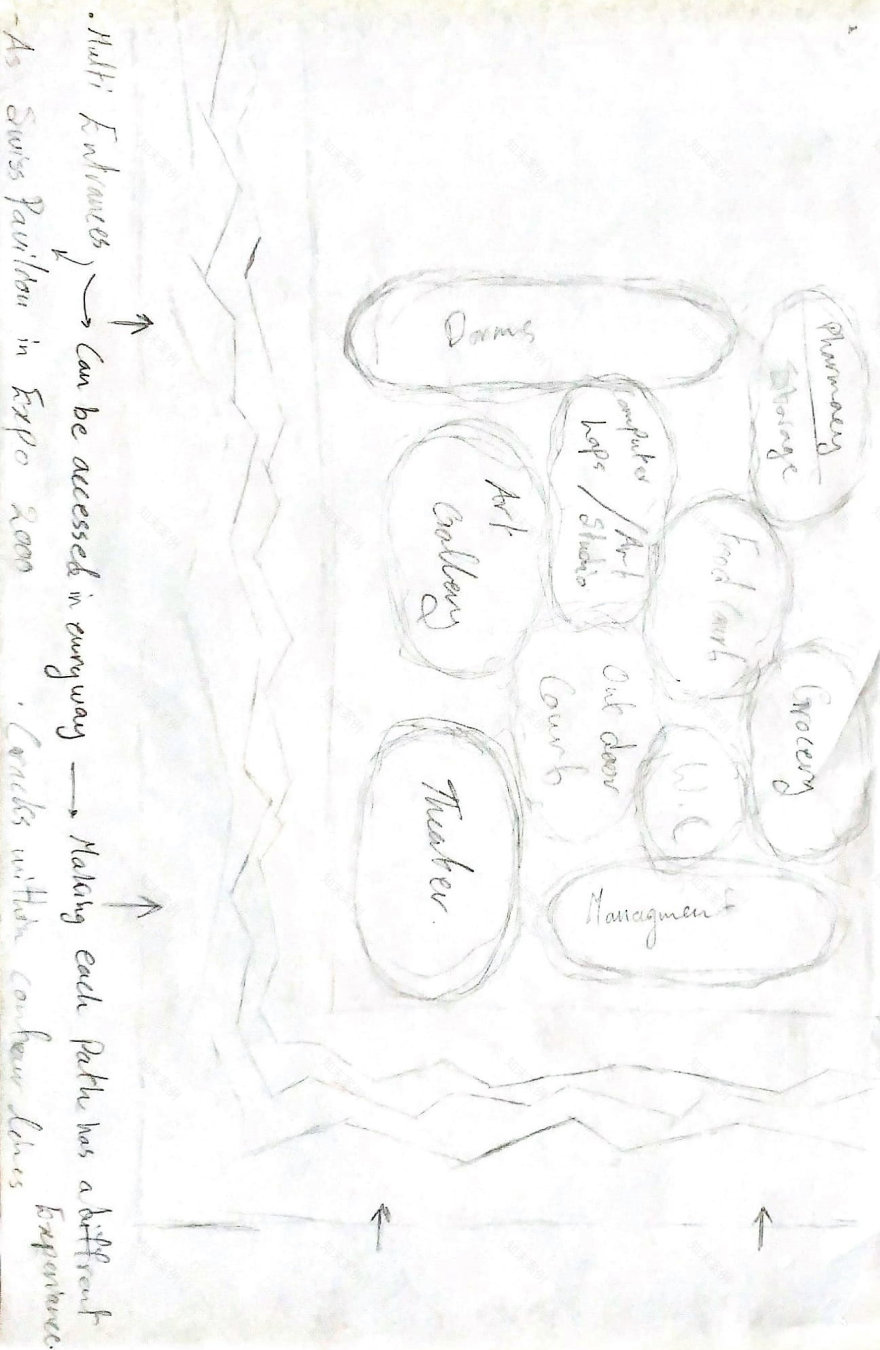 Pharmacy
Storage
Grocery
Food Court
W.C
Managment
Computer
Laps / Art
Studio
Out door
Court
Dorms
Art
Gallery
Theater.
. Multi Entrances, → Can be accessed in everyway → Making each Path has a diffrent
Experiance.
- As Swiss Pavilion in Expo 2000 . within contour lines